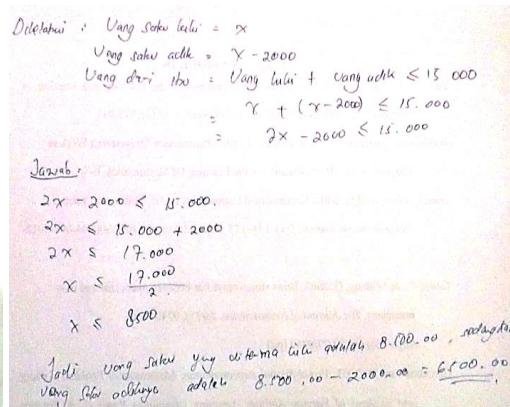 Diketahui : Uang saku luli = x
Uang saku adik = x - 2000
Uang dari ibu = Uang luli + uang adik ≤ 15 000
= x + (x - 2000) ≤ 15.000
= 2x - 2000 ≤ 15.000
Jawab :
2x - 2000 ≤ 15.000.
2x ≤ 15.000 + 2000
2x ≤ 17.000
x ≤ 17.000 / 2.
x ≤ 8500
Jadi uang saku yang diterima luli adalah 8.500.00, sedangkan
uang saku adiknya adalah 8.500,00 - 2000.00 = 6500.00